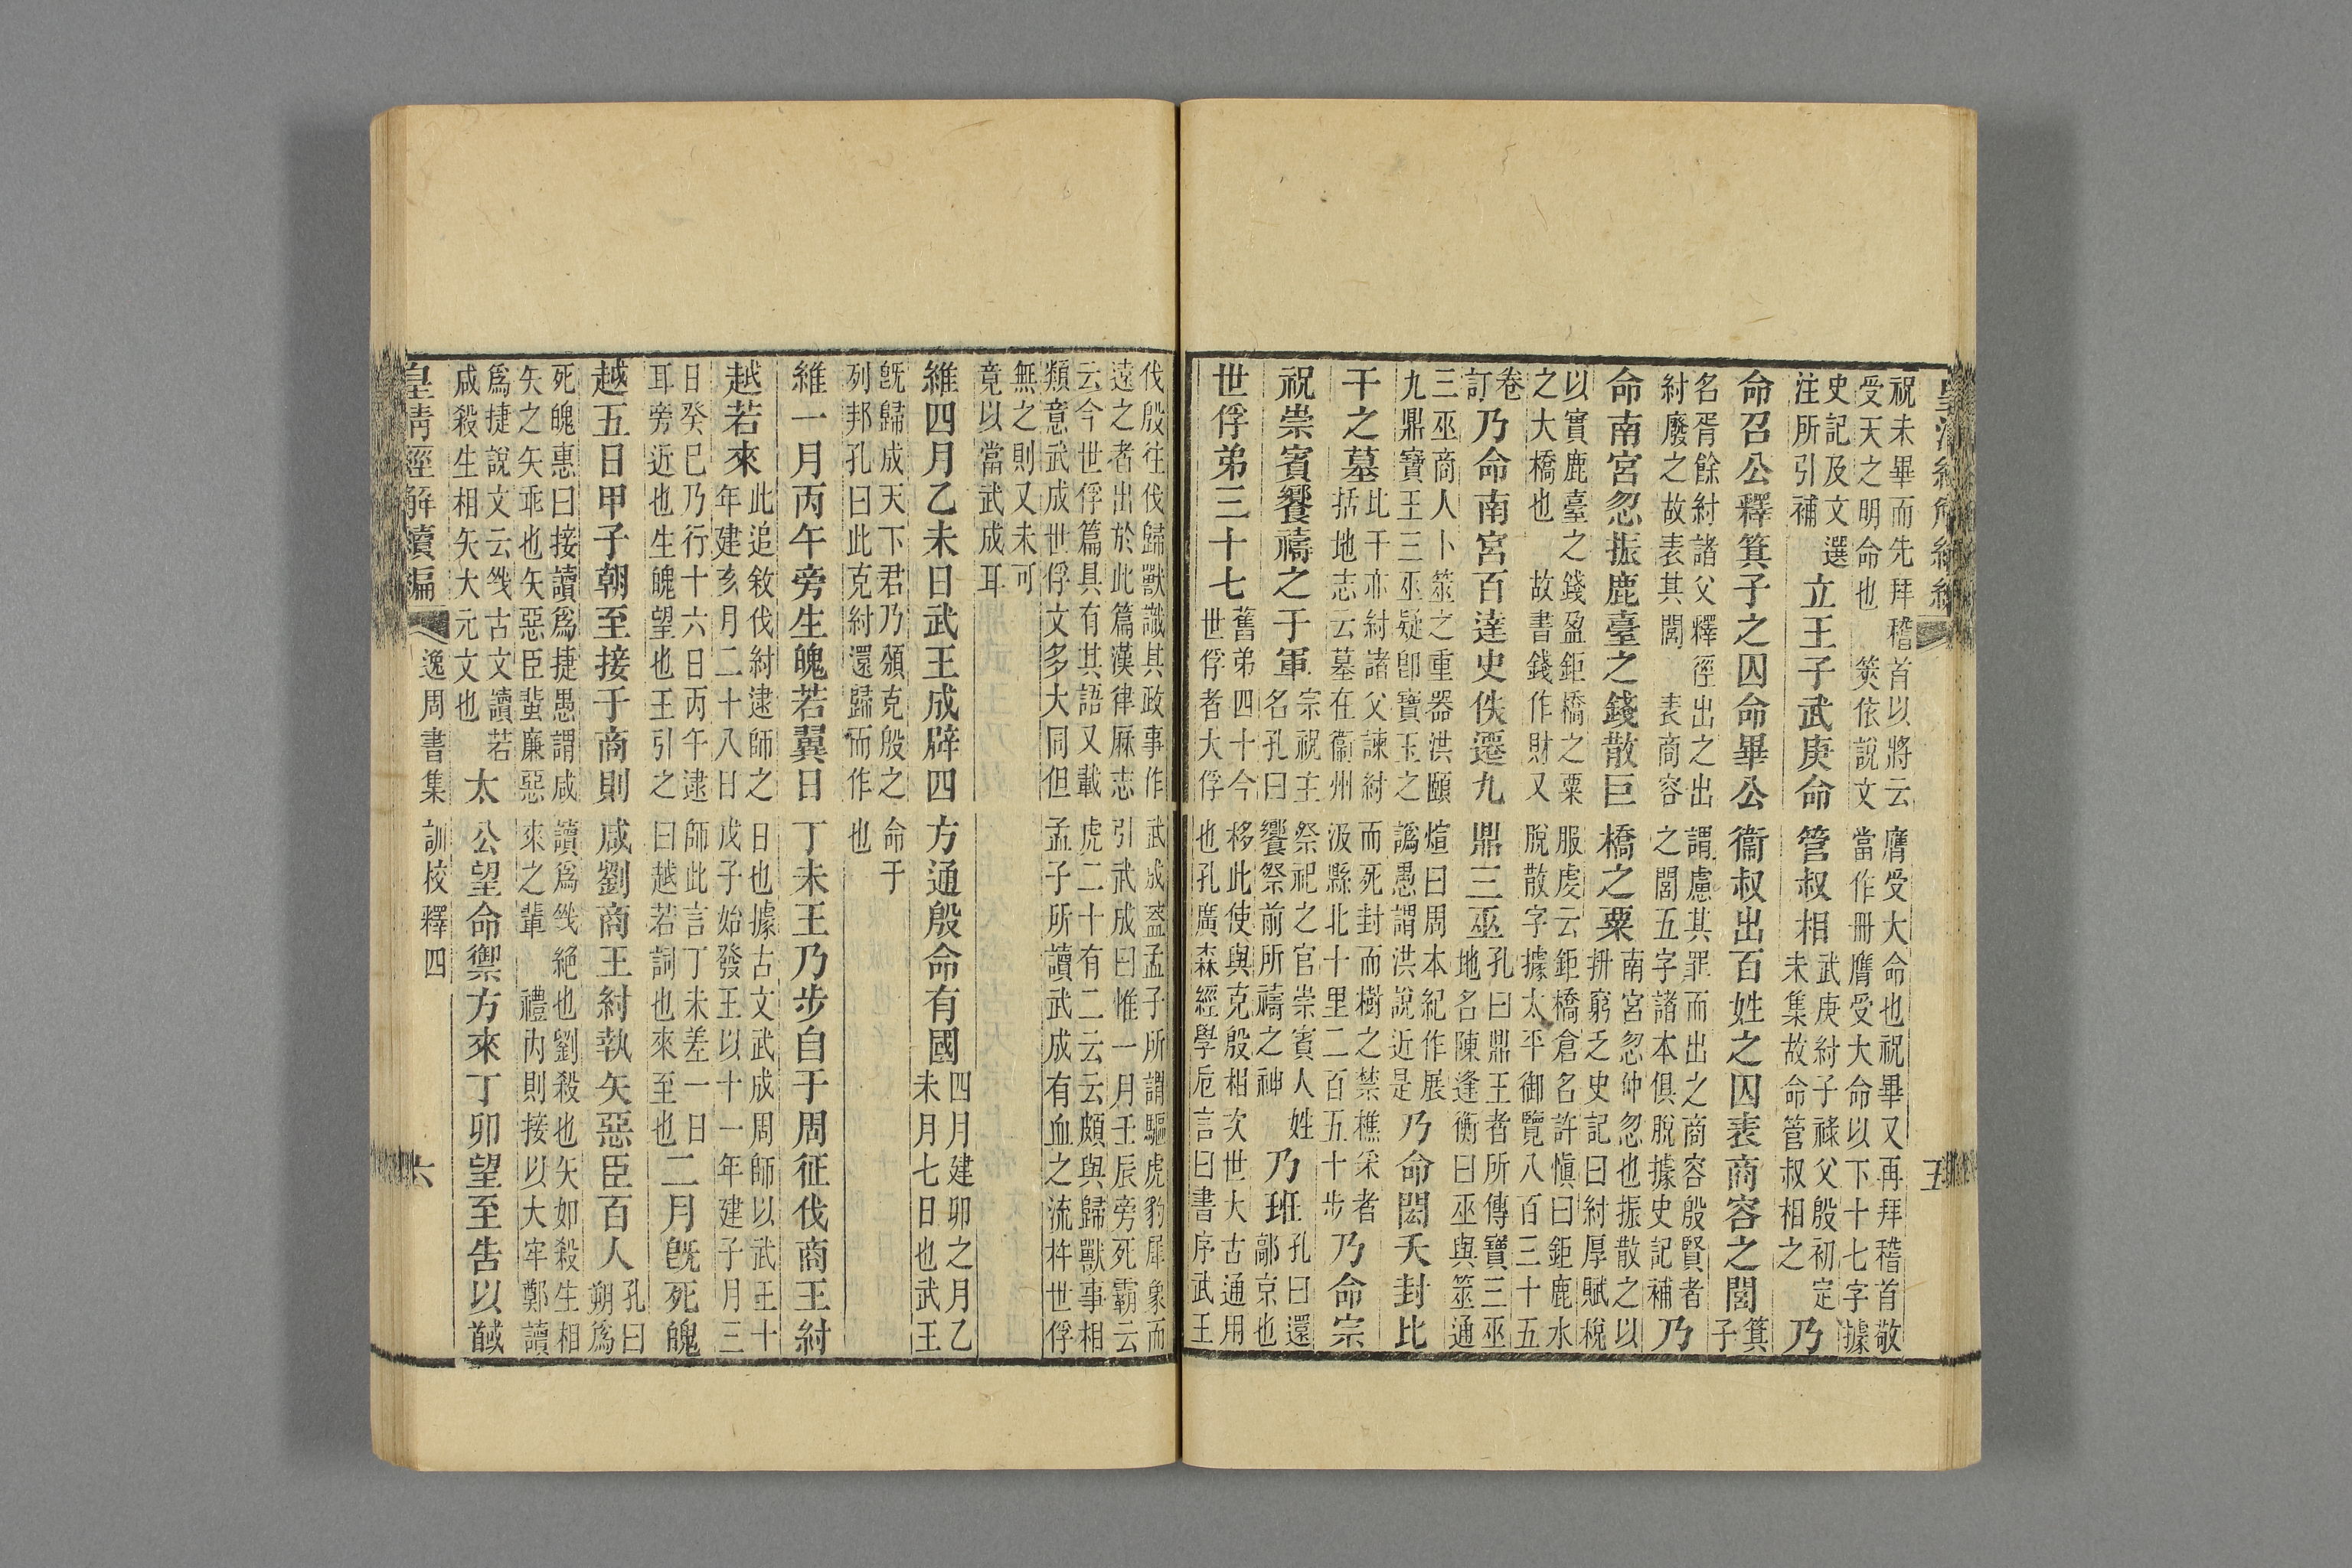 祝未畢而先拜稽首以將云膺受大命也祝畢又再拜稽首敬
受天之明命也 筴依說文當作冊膺受大命以下十七字據
史記及文選
注所引補
立王子武庚命管叔相
武庚紂子祿父殷初定
未集故命管叔相之
乃
命召公釋箕子之囚命畢公衞叔出百姓之囚表商容之閭
箕
子
名胥餘紂諸父釋徑出之出謂慮其罪而出之商容殷賢者
紂廢之故表其閭 表商容之閭五字諸本俱脫據史記補
乃
命南宮忽振鹿臺之錢散巨橋之粟
南宮忽仲忽也振散之以
拼窮乏史記曰紂厚賦稅
以實鹿臺之錢盈鉅橋之粟服虔云鉅橋倉名許愼曰鉅鹿水
之大橋也 故書錢作財又脫散字據太平御覽八百三十五
卷
訂
乃命南宮百達史佚遷九鼎三巫
孔曰鼎王者所傳寶三巫
地名陳逢衡曰巫與筮通
三巫商人卜筮之重器洪頤煊曰周本紀作展
九鼎寶王三巫疑卽寶玉之譌愚謂洪說近是
乃命閎夭封比
干之墓
比干亦紂諸父諫紂而死封而樹之禁樵采者
括地志云墓在衞州汲縣北十里二百五十步
乃命宗
祝崇賓饗禱之于軍
宗祝主祭祀之官崇賓人姓
名孔曰饗祭前所禱之神
乃班
孔曰還
鄗京也
世俘弟三十七
舊弟四十今移此使與克殷相次世大古通用
世俘者大俘也孔廣森經學卮言曰書序武王
五
伐殷往伐歸獸識其政事作武成葢孟子所謂驅虎豹犀象而
遠之者出於此篇漢律厤志引武成曰惟一月壬辰旁死霸云
云今世俘篇具有其語又載虎二十有二云云頗與歸獸事相
類意武成世俘文多大同但孟子所讀武成有血之流杵世俘
無之則又未可
竟以當武成耳
維四月乙未日武王成辟四方通殷命有國
四月建卯之月乙
未月七日也武王
旣歸成天下君乃頒克殷之命于
列邦孔曰此克紂還歸而作也
維一月丙午旁生魄若翼日丁未王乃步自于周征伐商王紂
越若來
此追敘伐紂逮師之日也據古文武成周師以武王十
年建亥月二十八日戊子始發王以十一年建子月三
日癸巳乃行十六日丙午逮師此言丁未差一日
耳旁近也生魄望也王引之曰越若詞也來至也
二月旣死魄
越五日甲子朝至接于商則咸劉商王紂執矢惡臣百人
孔曰
朔爲
死魄惠曰接讀爲捷愚謂咸讀爲㦰絕也劉殺也矢如殺生相
矢之矢乖也矢惡臣蜚廉惡來之輩 禮內則接以大牢鄭讀
爲捷說文云㦰古文讀若
咸殺生相矢大元文也
太公望命禦方來丁卯望至告以馘
皇清經解續編
逸周書集訓校釋四
六